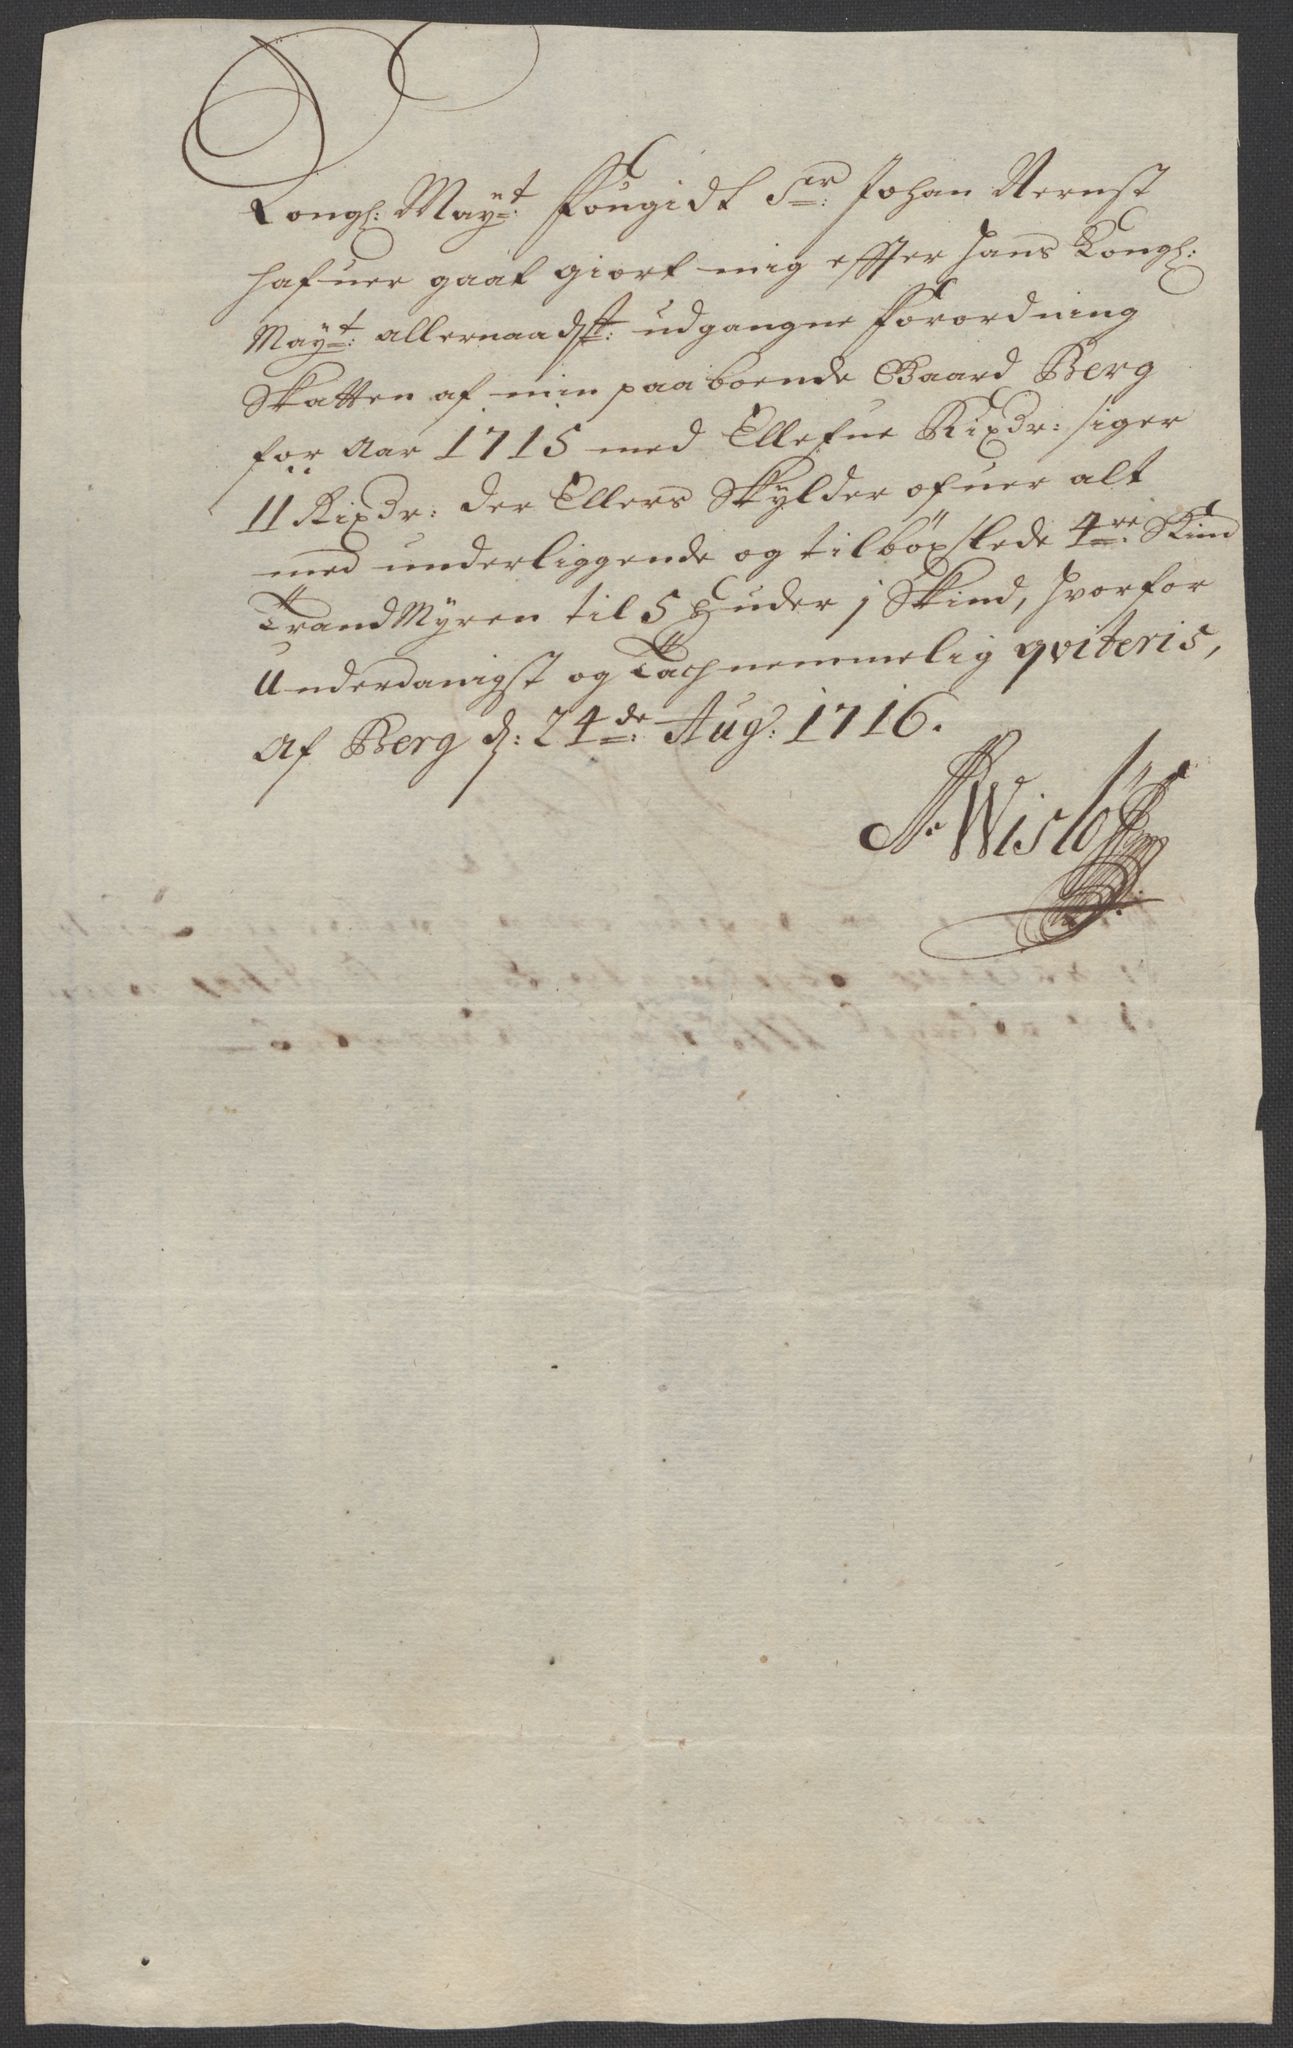 Kongl: Mayt: ffougidt Sr: Johan Nernst
hafuer gaat giort mig effter hans Kongl:
Mayt: allernaadst: udgangne fforordning
Skatten af min paaboende Gaard Berg
for Aar 1715 med Ellefue Rixdr: siger
11 Rixdr: der Ellers Skylder ofuer alt
med underliggende og tilböxlede 4re: Skind
TrandMyren til 5 Huder j Skind, hvorfor
Underdanigst og Tachnemmelig qviteris,
Af Berg d: 24de: Aug: 1716.
Wislöff